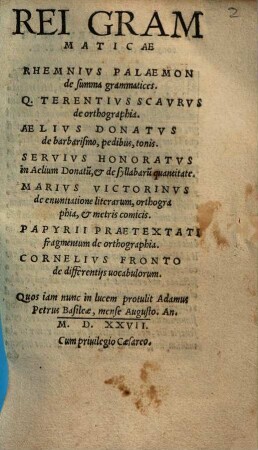 2
REI GRAM
MATICAE
RHEMNIVS PALAEMON
de summa grammatices.
Q. TERENTIVS SCAVRVS
de orthographia.
AELIVS DONATVS
de barbarismo, pedibus, tonis.
SERVIVS HONORATVS
in Aelium Donatũ, & de syllabarũ quantitate.
MARIVS VICTORINVS
de enuntiatione literarum, orthogra
phia, & metris comicis.
PAPYRII PRAETEXTATI
fragmentum de orthographia.
CORNELIVS FRONTO
de differentijs uocabulorum.
Quos iam nunc in lucem protulit Adamus
Petrus Basileæ, mense Augusto. An.
M. D. XXVII.
Cum priuilegio Cæsareo.